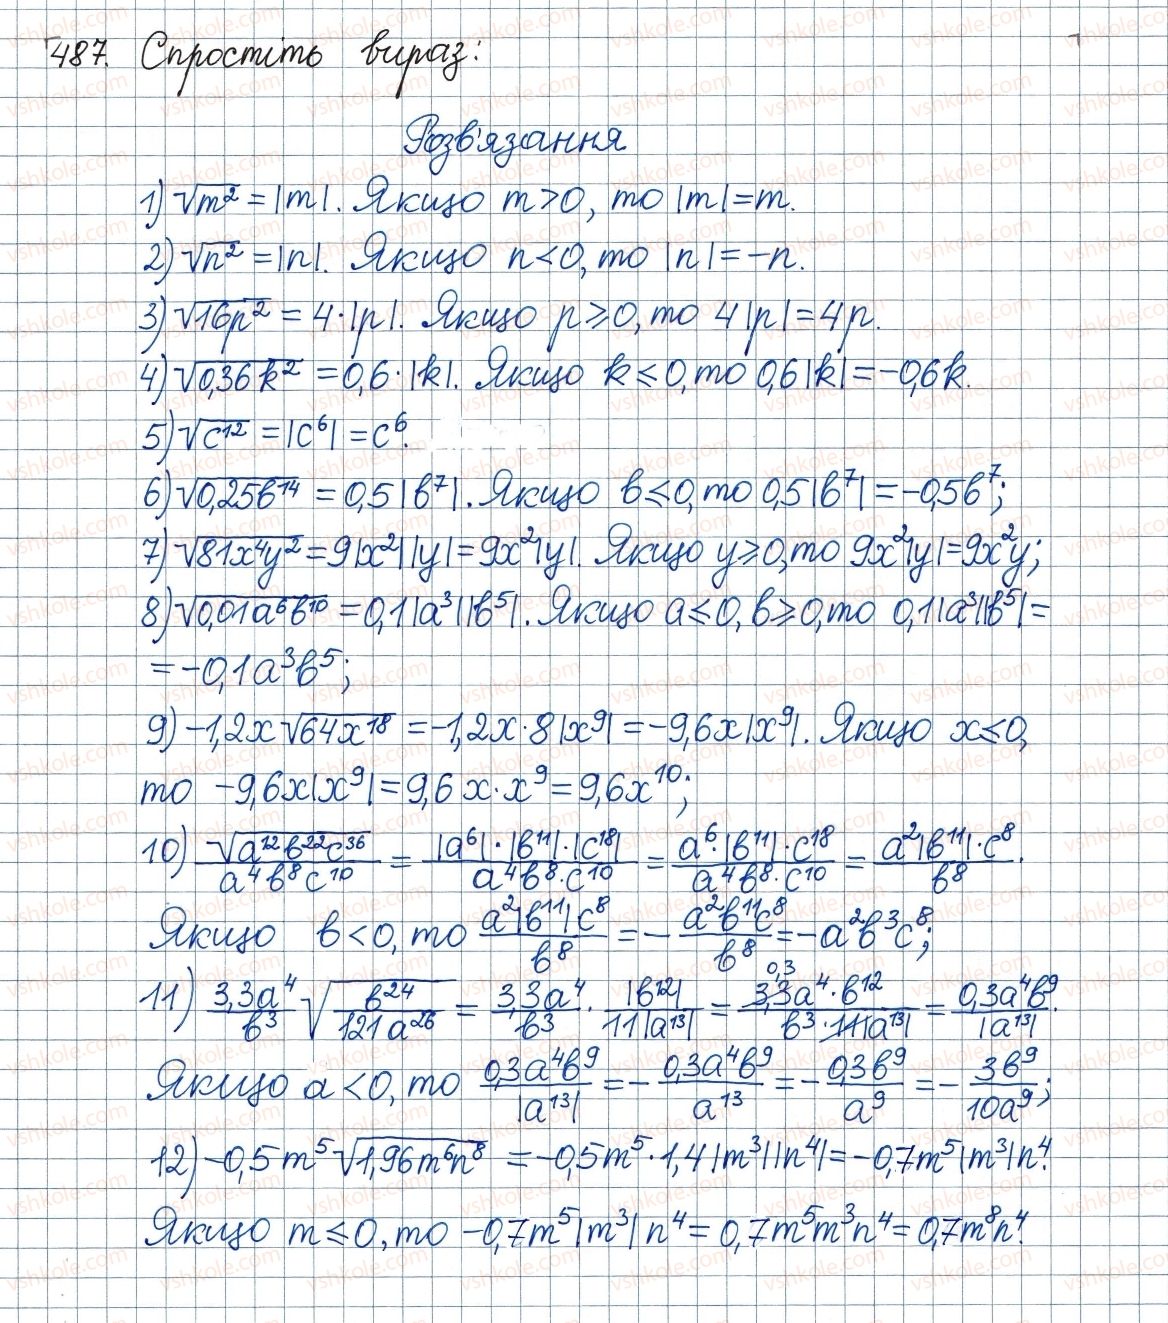 487. Спростіть вираз:
Розв'язання
1) √m² = |m|. Якщо m > 0, то |m| = m.
2) √n² = |n|. Якщо n < 0, то |n| = -n.
3) √16p² = 4·|p|. Якщо p ≥ 0, то 4|p| = 4p.
4) √0,36k² = 0,6·|k|. Якщо k ≤ 0, то 0,6|k| = -0,6k.
5) √c¹² = |c⁶| = c⁶.
6) √0,25b¹⁴ = 0,5|b⁷|. Якщо b ≤ 0, то 0,5|b⁷| = -0,5b⁷;
7) √81x⁴y² = 9|x²||y| = 9x²|y|. Якщо y ≥ 0, то 9x²|y| = 9x²y;
8) √0,01a⁶b¹⁰ = 0,1|a³||b⁵|. Якщо a ≤ 0, b ≥ 0, то 0,1|a³||b⁵| =
= -0,1a³b⁵;
9) -1,2x√64x¹⁸ = -1,2x·8|x⁹| = -9,6x|x⁹|. Якщо x ≤ 0,
то -9,6x|x⁹| = 9,6x·x⁹ = 9,6x¹⁰;
10) √a¹²b²²c³⁶ / a⁴b⁸c¹⁰ = |a⁶|·|b¹¹|·|c¹⁸| / a⁴b⁸·c¹⁰ = a⁶·|b¹¹|·c¹⁸ / a⁴b⁸·c¹⁰ = a²|b¹¹|·c⁸ / b⁸.
Якщо b < 0, то a²|b¹¹|c⁸ / b⁸ = - a²b¹¹c⁸ / b⁸ = -a²b³c⁸;
11) 3,3a⁴ / b³ √(b²⁴ / 121a²⁶) = 3,3a⁴ / b³ · |b¹²| / 11|a¹³| = 0,3 3,3a⁴·b¹² / b³·11|a¹³| = 0,3a⁴b⁹ / |a¹³|.
Якщо a < 0, то 0,3a⁴b⁹ / |a¹³| = - 0,3a⁴b⁹ / a¹³ = - 0,3b⁹ / a⁹ = - 3b⁹ / 10a⁹;
12) -0,5m⁵√1,96m⁶n⁸ = -0,5m⁵·1,4|m³||n⁴| = -0,7m⁵|m³|n⁴.
Якщо m ≤ 0, то -0,7m⁵|m³|n⁴ = 0,7m⁵m³n⁴ = 0,7m⁸n⁴.
vshkole.com